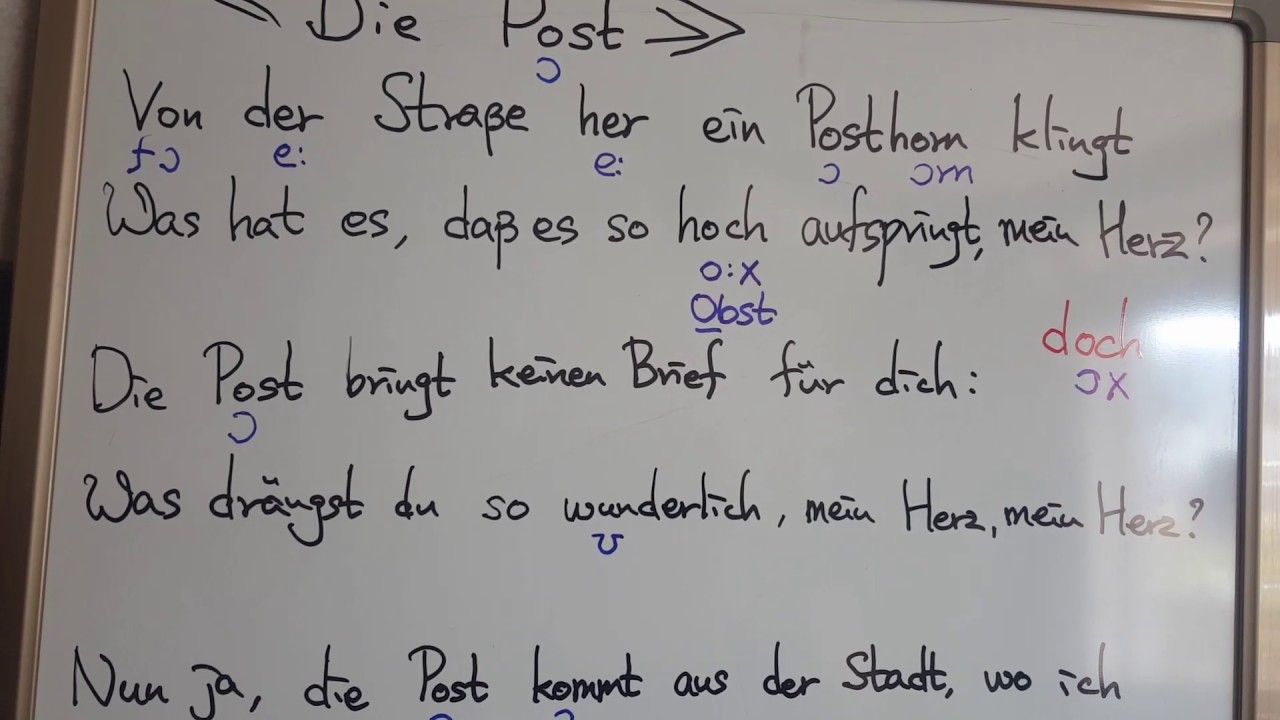 ≪ Die Post ≫
ɔ
Von der Straße her ein Posthorn klingt
fɔ e: e: ɔ ɔrn
Was hat es, daß es so hoch aufspringt, mein Herz?
o:x
Obst
doch
ɔx
Die Post bringt keinen Brief für dich:
ɔ
Was drängst du so wunderlich, mein Herz, mein Herz?
ʊ
Nun ja, die Post kommt aus der Stadt, wo ich